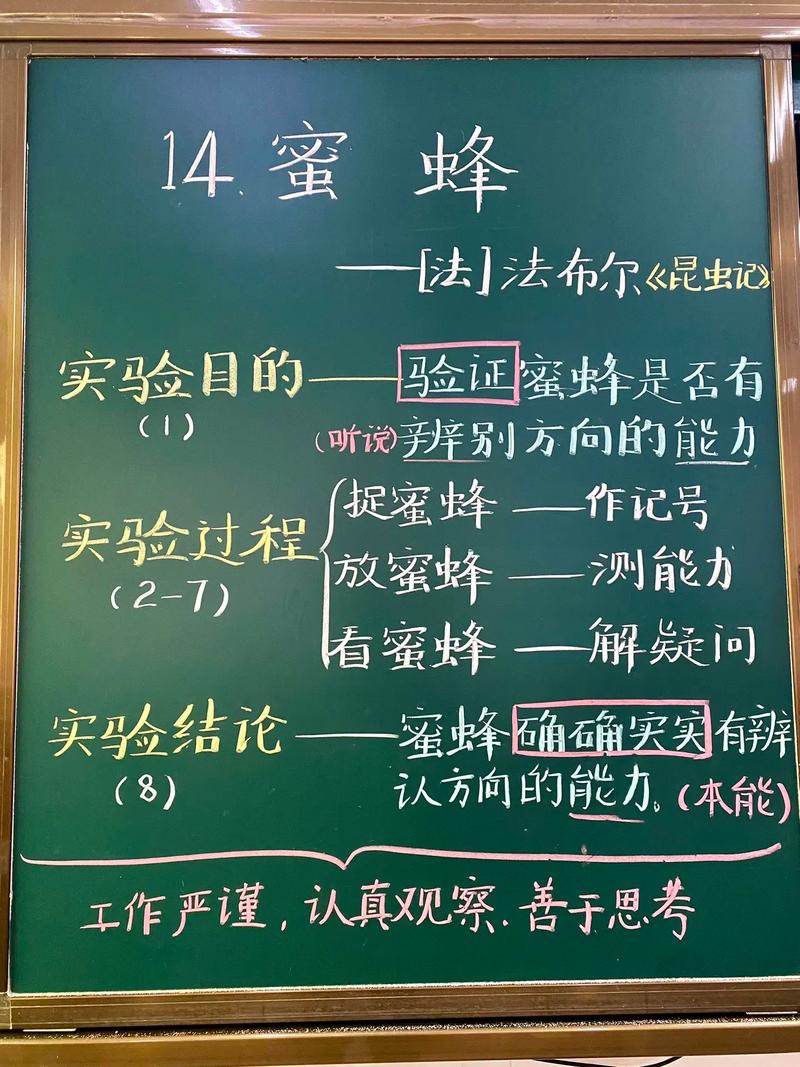 14. 蜜 蜂
——[法]法布尔《昆虫记》
实验目的——验证蜜蜂是否有
(1)
(听说)辨别方向的能力
捉蜜蜂——作记号
实验过程
放蜜蜂——测能力
(2-7)
看蜜蜂——解疑问
实验结论——蜜蜂确确实实有辨
(8)
认方向的能力。(本能)
工作严谨,认真观察.善于思考